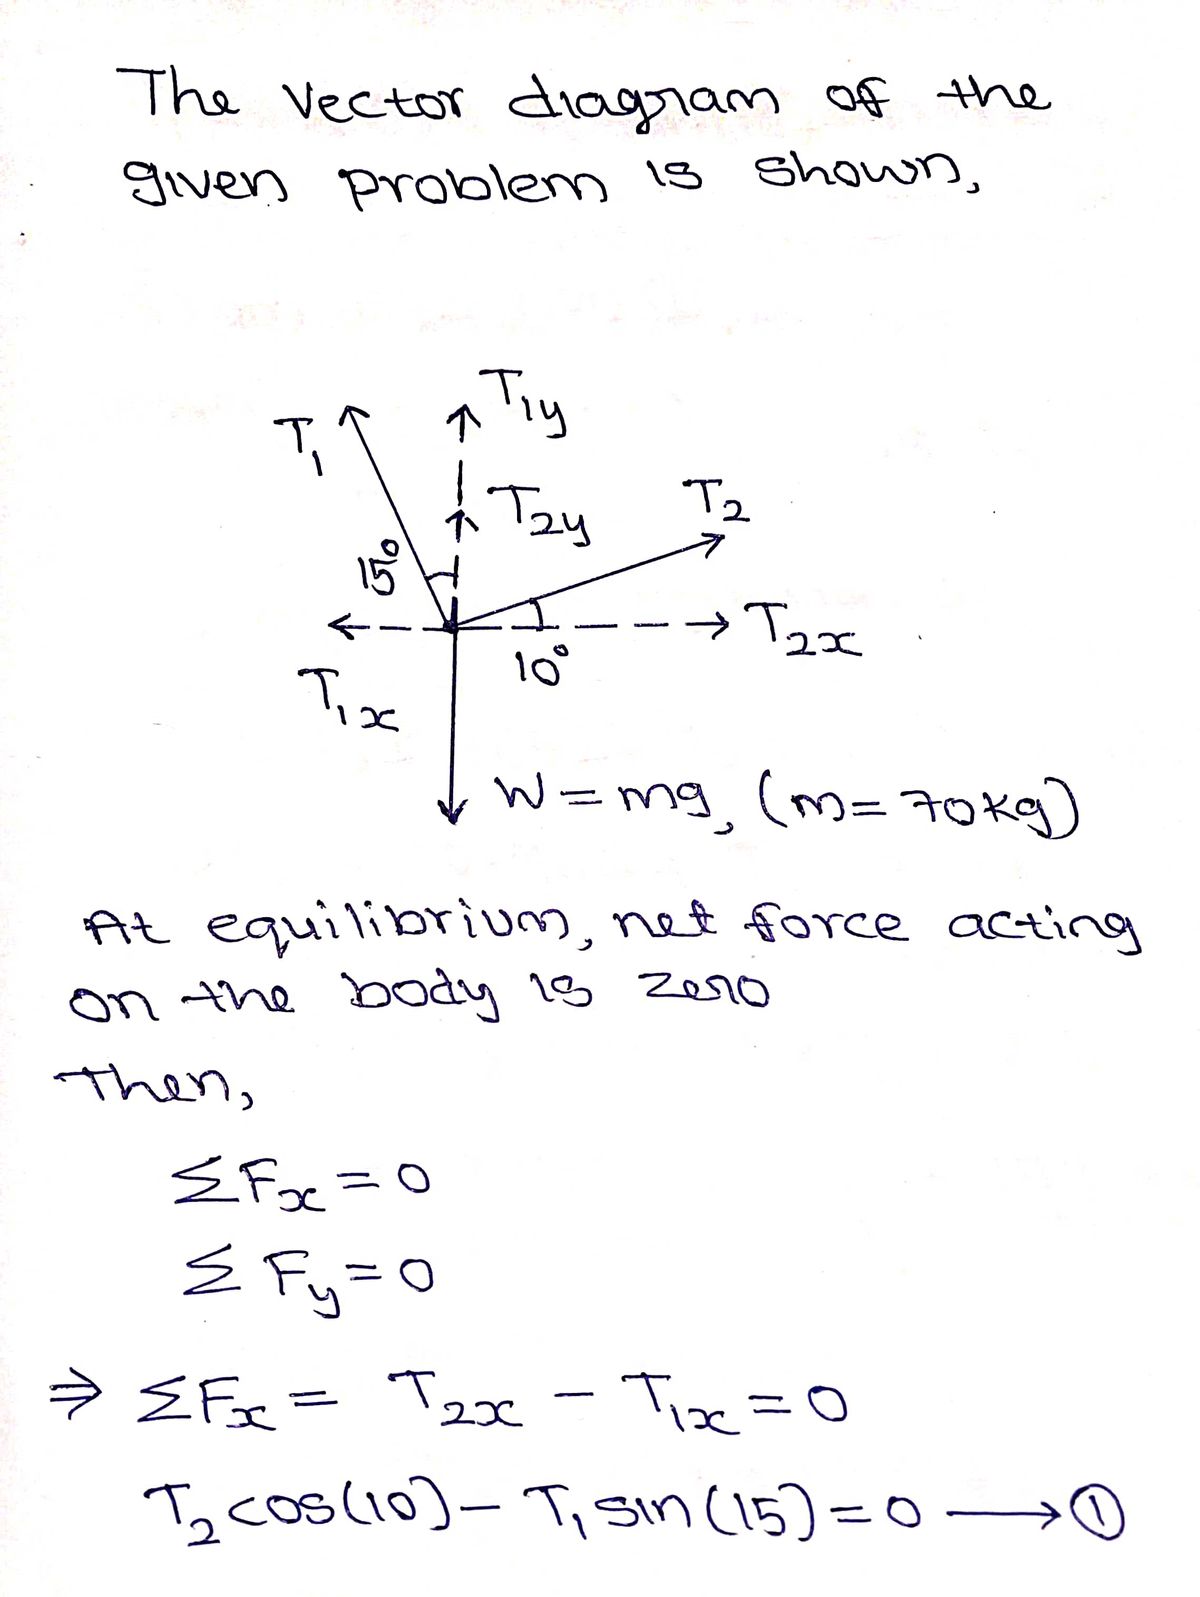 The vector diagram of the
given problem is shown,
T₁y
T₁
T₂y
T₂
15°
T₂x
10°
T₁x
W = mg, (m = 70kg)
At equilibrium, net force acting
on the body is zero
Then,
ΣFx = 0
ΣFy = 0
⇒ ΣFx = T₂x − T₁x = 0
T₂ cos(10) − T₁ sin(15) = 0 ⟶ ①